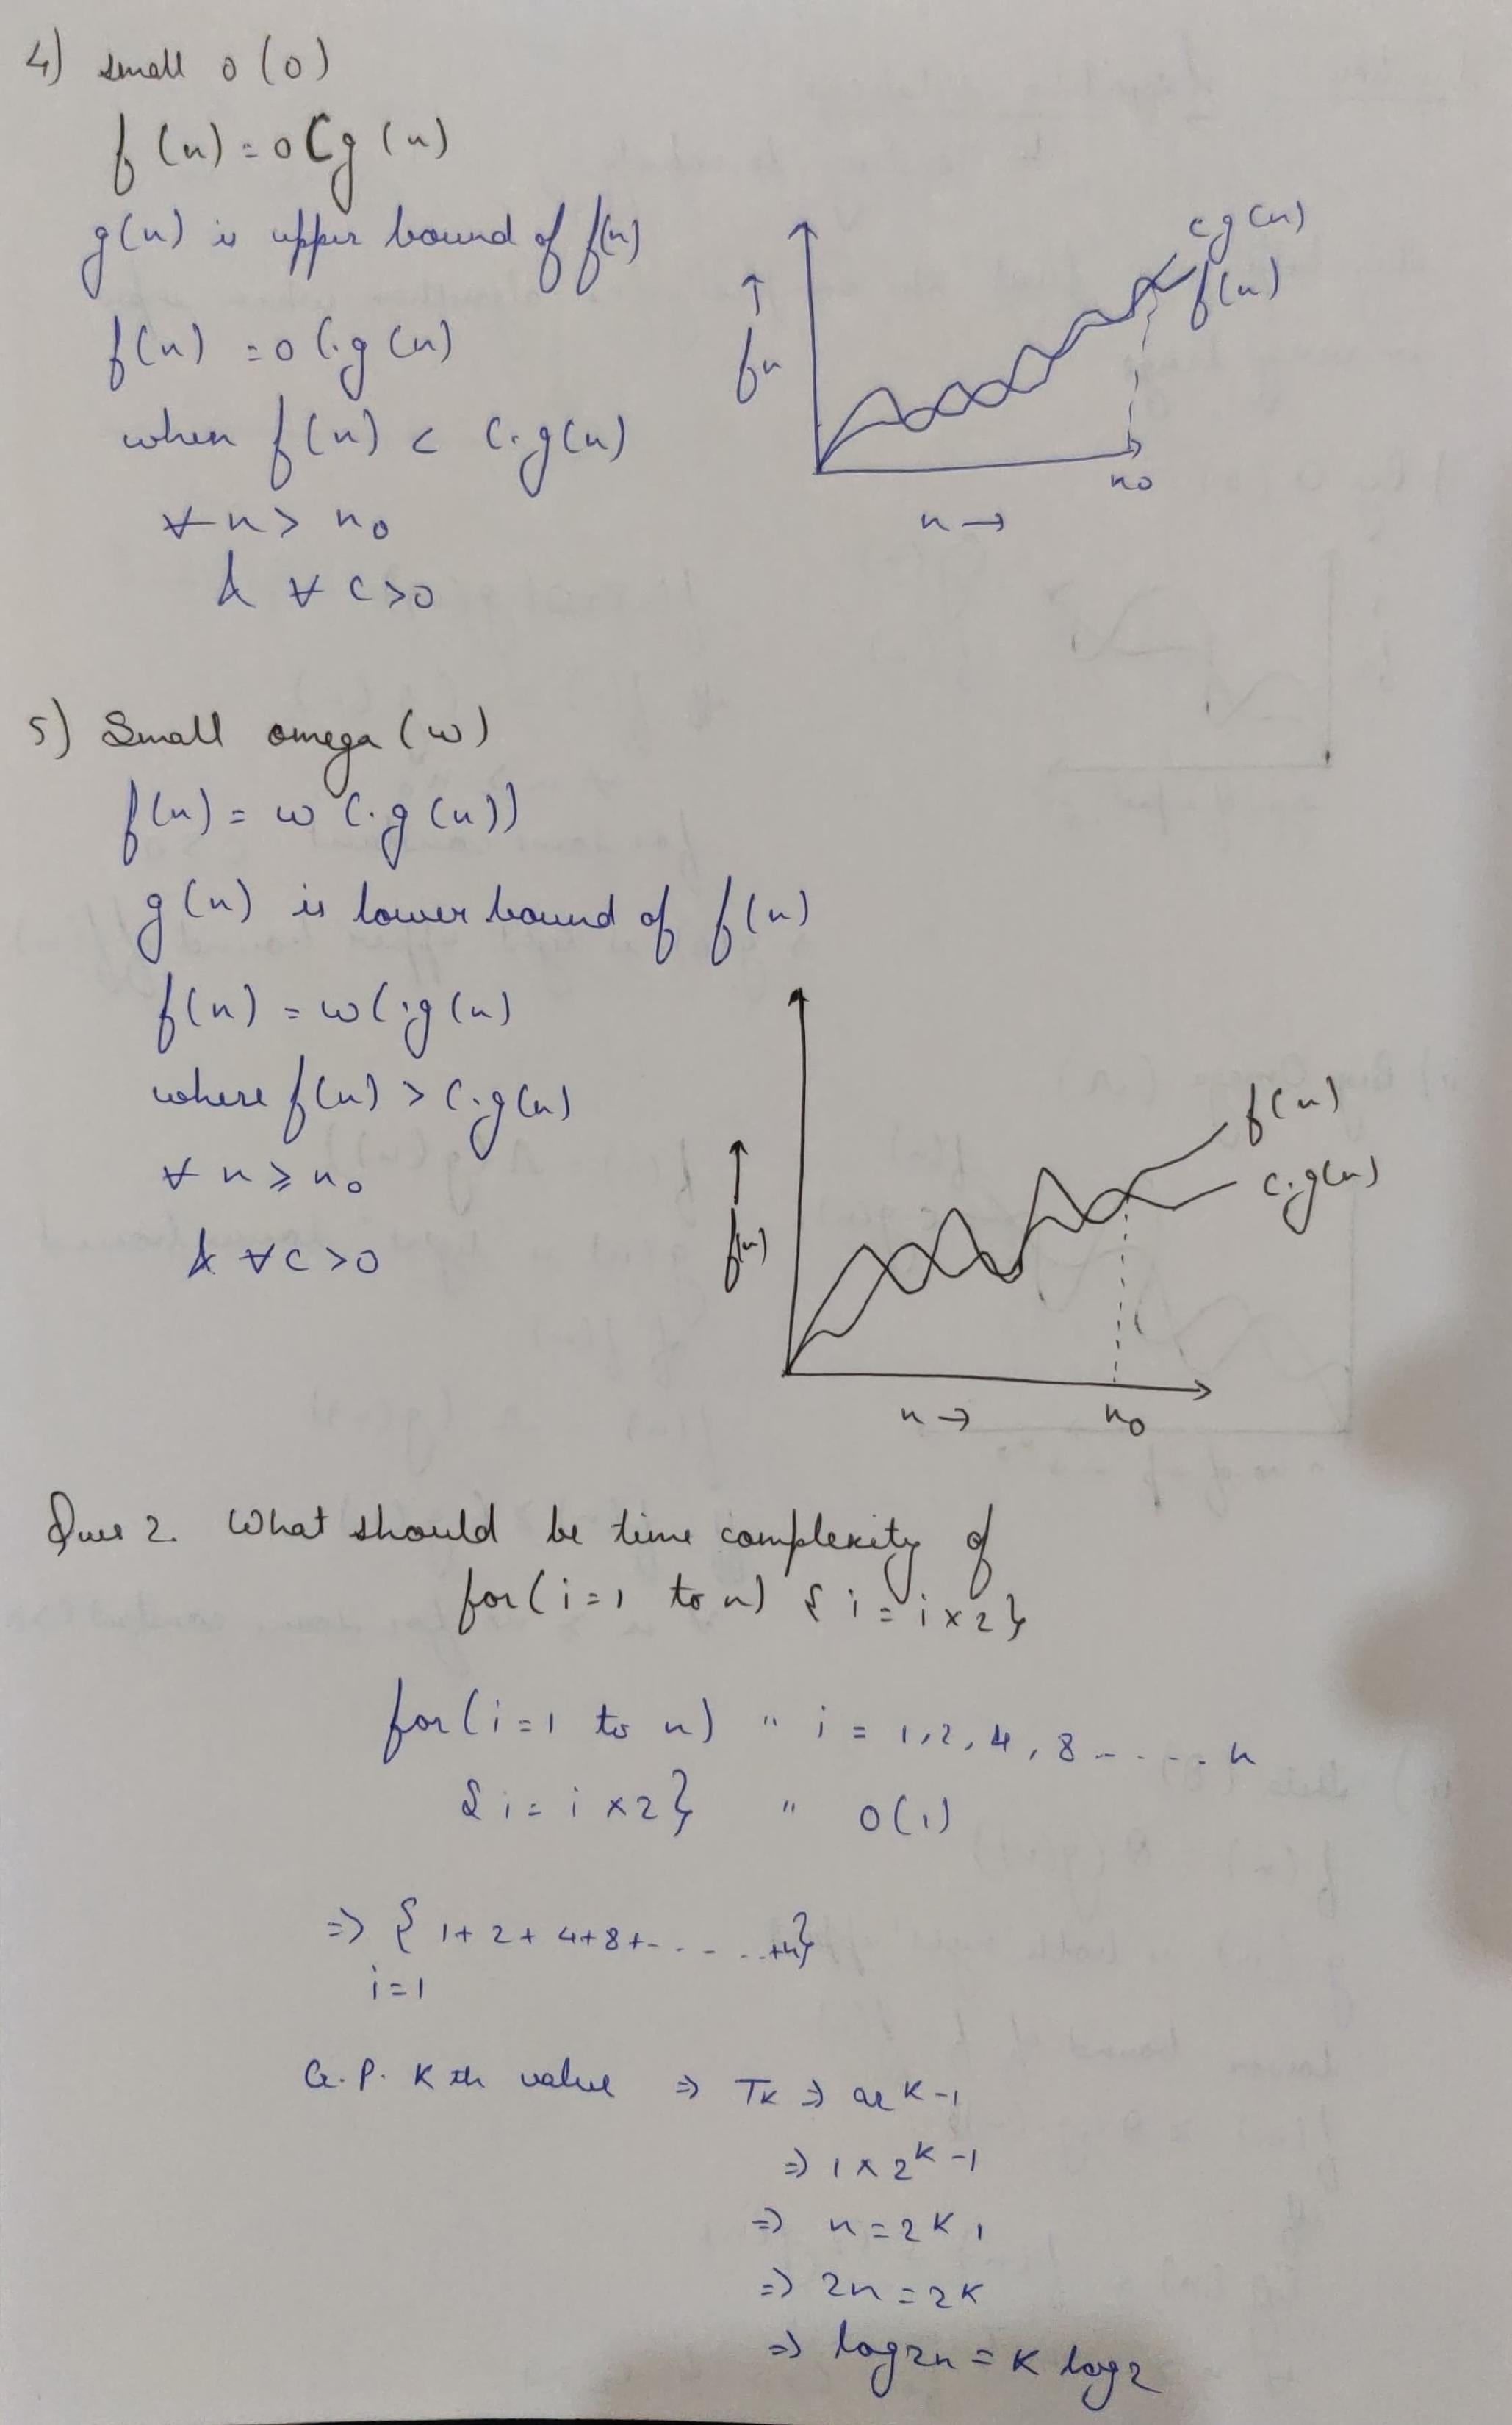 4) small o (o)
f(n) = o(g(n)
g(n) is upper bound of f(n)
f(n) = o(.g(n)
when f(n) < C.g(n)
∀ n > n0
& ∀ c>0
cg(n)
f(n)
↑
fn
n0
n →
5) Small omega (ω)
f(n) = ω(.g(n))
g(n) is lower bound of f(n)
f(n) = ω(.g(n)
where f(n) > C.g(n)
∀ n ≥ n0
& ∀ c >0
f(n)
c.g(n)
↑
f(n)
n → n0
Ques 2. What should be time complexity of
for(i=1 to n) { i = i×2}
for(i=1 to n) " i = 1, 2, 4, 8 - . . - . n
{ i = i ×2} " O(1)
=> { 1+ 2+ 4+8+- . . - . . +n}
i=1
G.P. K th value => TK => ar^K-1
=> 1 × 2^K-1
=> n = 2^K 1
=> 2n = 2^K
=> log2n = K log2